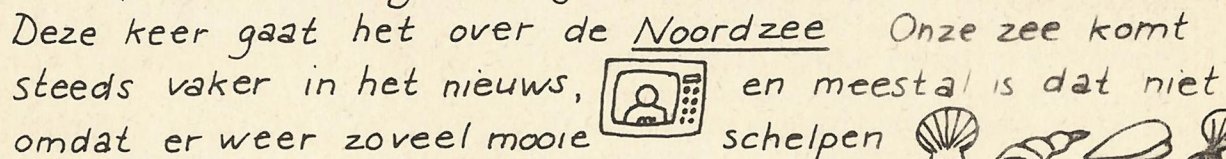 Deze keer gaat het over de Noordzee Onze zee komt
steeds vaker in het nieuws, en meestal is dat niet
omdat er weer zoveel mooie schelpen